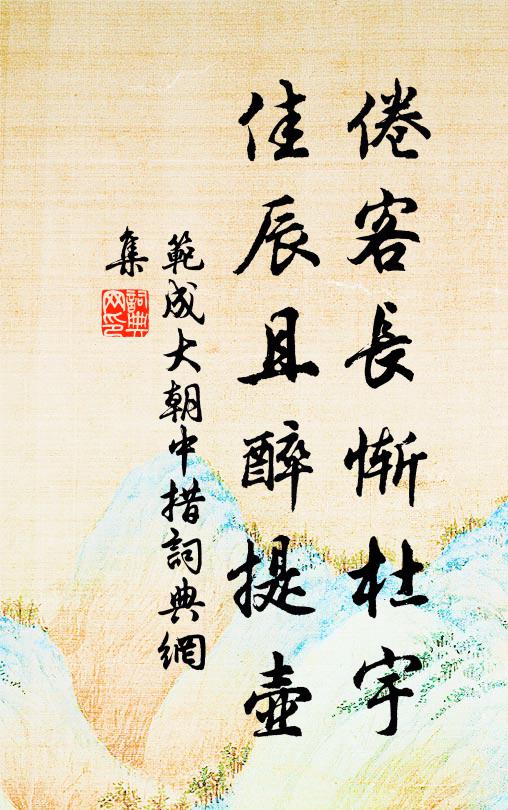 倦客長慚杜宇
佳辰且醉提壺
範成大朝中措詞典網
集
詞典
网印